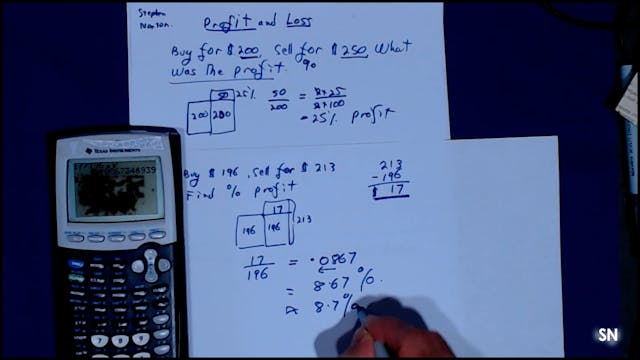 Stephen
Norton.
Profit and Loss
Buy for $200, Sell for $250. What
was the profit. %
50 25%
200 200
50/200 = 2×25/2×100
= 25% profit
Buy $196, Sell for $213
Find % profit
213
- 196
$ 17
17
196 196 213
17/196 = .0867
= 8.67 %.
≈ 8.7%
TEXAS INSTRUMENTS
SN